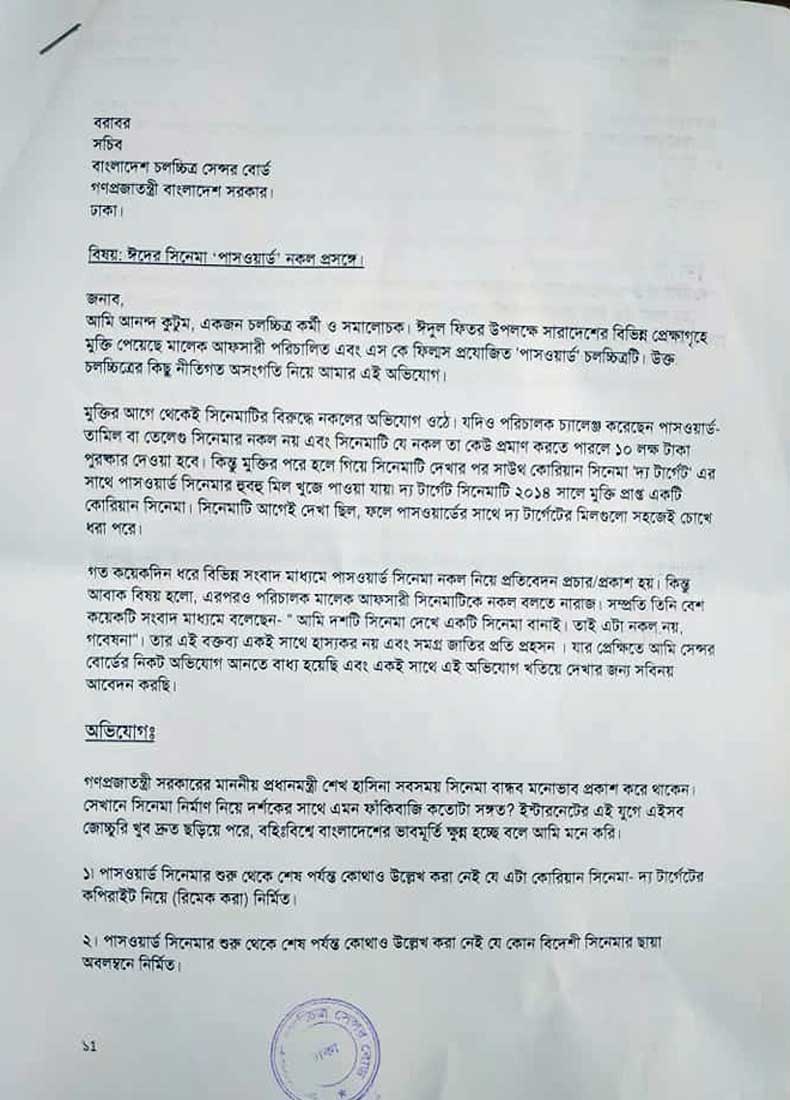 বরাবর
সচিব
বাংলাদেশ চলচ্চিত্র সেন্সর বোর্ড
গণপ্রজাতন্ত্রী বাংলাদেশ সরকার।
ঢাকা।
বিষয়: ঈদের সিনেমা ‘পাসওয়ার্ড’ নকল প্রসঙ্গে।
জনাব,
আমি আনন্দ কুটুম, একজন চলচ্চিত্র কর্মী ও সমালোচক। ঈদুল ফিতর উপলক্ষে সারাদেশের বিভিন্ন প্রেক্ষাগৃহে
মুক্তি পেয়েছে মালেক আফসারী পরিচালিত এবং এস কে ফিল্মস প্রযোজিত 'পাসওয়ার্ড' চলচ্চিত্রটি। উক্ত
চলচ্চিত্রের কিছু নীতিগত অসংগতি নিয়ে আমার এই অভিযোগ।
মুক্তির আগে থেকেই সিনেমাটির বিরুদ্ধে নকলের অভিযোগ ওঠে। যদিও পরিচালক চ্যালেঞ্জ করেছেন পাসওয়ার্ড-
তামিল বা তেলেগু সিনেমার নকল নয় এবং সিনেমাটি যে নকল তা কেউ প্রমাণ করতে পারলে ১০ লক্ষ টাকা
পুরষ্কার দেওয়া হবে। কিন্তু মুক্তির পরে হলে গিয়ে সিনেমাটি দেখার পর সাউথ কোরিয়ান সিনেমা 'দ্য টার্গেট' এর
সাথে পাসওয়ার্ড সিনেমার হুবহু মিল খুজে পাওয়া যায়। দ্য টার্গেট সিনেমাটি ২০১৪ সালে মুক্তি প্রাপ্ত একটি
কোরিয়ান সিনেমা। সিনেমাটি আগেই দেখা ছিল, ফলে পাসওয়ার্ডের সাথে দ্য টার্গেটের মিলগুলো সহজেই চোখে
ধরা পরে।
গত কয়েকদিন ধরে বিভিন্ন সংবাদ মাধ্যমে পাসওয়ার্ড সিনেমা নকল নিয়ে প্রতিবেদন প্রচার/প্রকাশ হয়। কিন্তু
আবাক বিষয় হলো, এরপরও পরিচালক মালেক আফসারী সিনেমাটিকে নকল বলতে নারাজ। সম্প্রতি তিনি বেশ
কয়েকটি সংবাদ মাধ্যমে বলেছেন- " আমি দশটি সিনেমা দেখে একটি সিনেমা বানাই। তাই এটা নকল নয়,
গবেষনা"। তার এই বক্তব্য একই সাথে হাস্যকর নয় এবং সমগ্র জাতির প্রতি প্রহসন । যার প্রেক্ষিতে আমি সেন্সর
বোর্ডের নিকট অভিযোগ আনতে বাধ্য হয়েছি এবং একই সাথে এই অভিযোগ খতিয়ে দেখার জন্য সবিনয়
আবেদন করছি।
অভিযোগঃ
গণপ্রজাতন্ত্রী সরকারের মাননীয় প্রধানমন্ত্রী শেখ হাসিনা সবসময় সিনেমা বান্ধব মনোভাব প্রকাশ করে থাকেন।
সেখানে সিনেমা নির্মাণ নিয়ে দর্শকের সাথে এমন ফাঁকিবাজি কতোটা সঙ্গত? ইন্টারনেটের এই যুগে এইসব
জোচ্চুরি খুব দ্রুত ছড়িয়ে পরে, বহিঃবিশ্বে বাংলাদেশের ভাবমূর্তি ক্ষুন্ন হচ্ছে বলে আমি মনে করি।
১। পাসওয়ার্ড সিনেমার শুরু থেকে শেষ পর্যন্ত কোথাও উল্লেখ করা নেই যে এটা কোরিয়ান সিনেমা- দ্য টার্গেটের
কপিরাইট নিয়ে (রিমেক করা) নির্মিত।
২। পাসওয়ার্ড সিনেমার শুরু থেকে শেষ পর্যন্ত কোথাও উল্লেখ করা নেই যে কোন বিদেশী সিনেমার ছায়া
অবলম্বনে নির্মিত।
চ্চিত্র সেন্সর বোর্ড
ঢাকা
১1